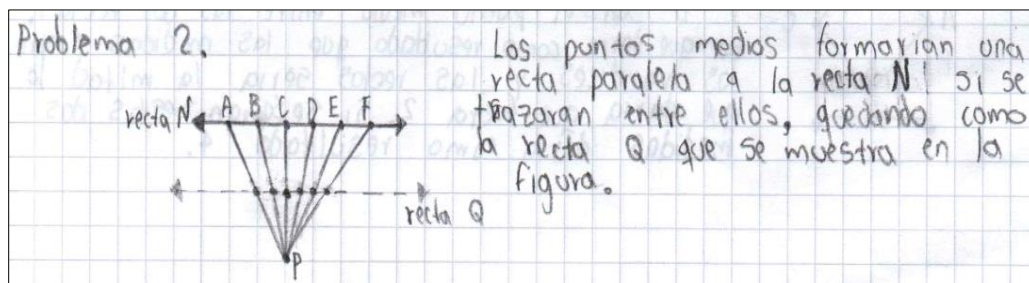 Problema 2.
Los puntos medios formarían una
recta paralela a la recta N si se
trazaran entre ellos, quedando como
la recta Q que se muestra en la
figura.
recta N A B C D E F
recta Q
P